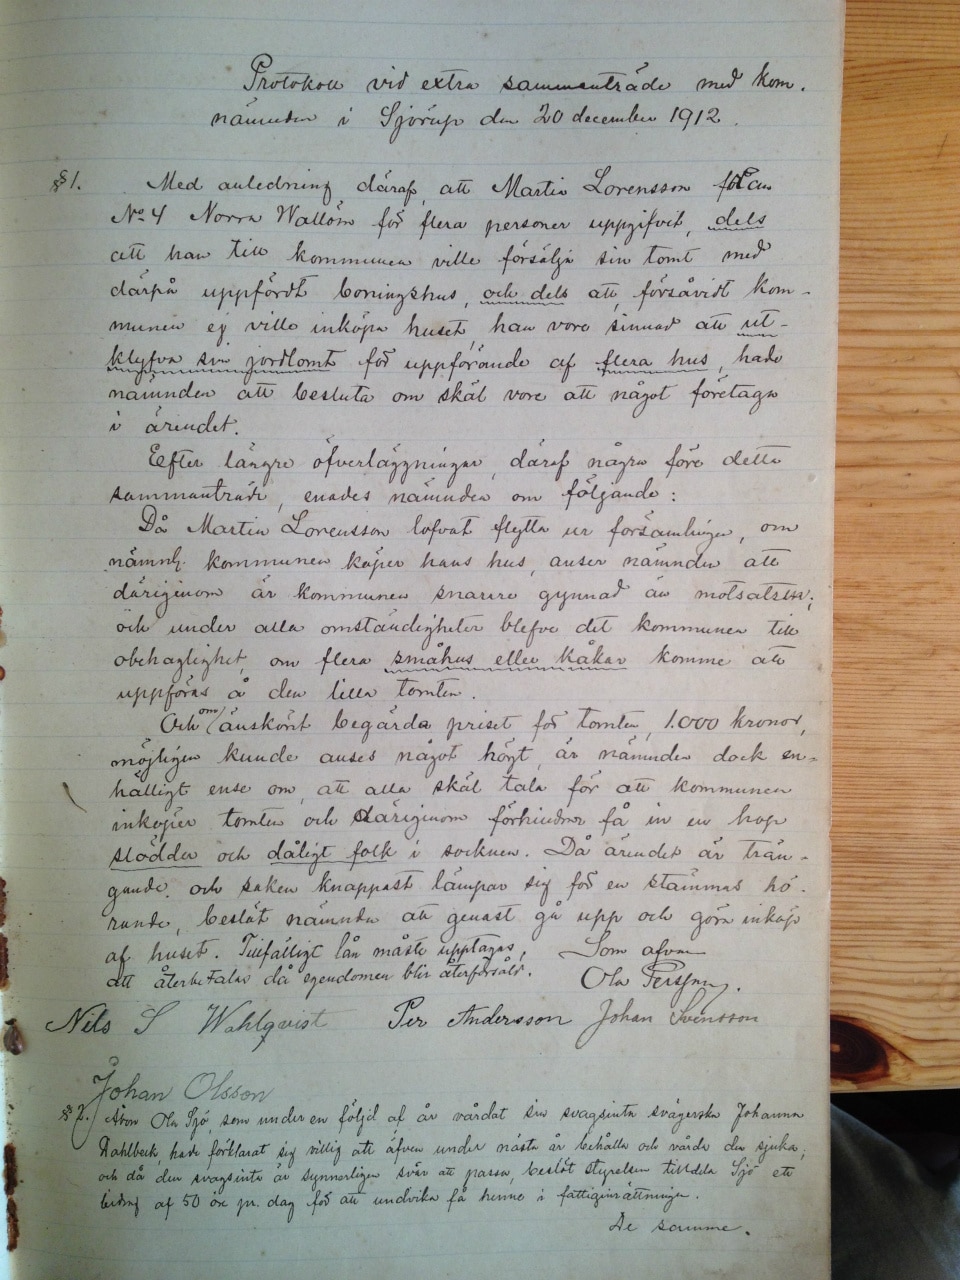 Protokoll vid extra sammanträde med kom.
nämnden i Sjörup den 20 december 1912.
§ 1. Med anledning däraf, att Martin Lorensson från
No 4 Norra Wallösa för flera personer uppgifvit, dels
att han till kommunen ville försälja sin tomt med
därpå uppfördt boningshus, och dels att, försåvidt kom-
munen ej ville inköpa huset, han vore sinnad att ut-
klyfva sin jordtomt för uppförande af flera hus, hade
nämnden att besluta om skäl vore att något företaga
i ärendet.
Efter längre öfverläggningar, däraf några före detta
sammanträde, enades nämnden om följande:
Då Martin Lorensson lofvat flytta ur församlingen, om
nämnl. kommunen köper hans hus, anser nämnden att
därigenom är kommunen snarare gynnad än motsatsen;
och under alla omständigheter blefve det kommunen till
obehaglighet, om flera småhus eller kåkar komme att
uppföras å den lilla tomten.
Och om änskönt begärda priset för tomten, 1.000 kronor,
möjligen kunde anses något högt, är nämnden dock en-
hälligt ense om, att alla skäl tala för att kommunen
inköper tomten och därigenom förhindrar få in en hop
slödder och dåligt folk i socknen. Då ärendet är trän-
gande, och saken knappast lämpar sig för en stämmas hö-
rande, beslöt nämnden att genast gå upp och göra inköp
af huset. Tillfälligt lån måste upptagas, Som ofvan
att återbetalas då egendomen blir återförsåld. Ola Persson.
Nils S Wahlqvist Per Andersson Johan Svensson
Johan Olsson
§ 2. Åbon Ola Sjö, som under en följd af år vårdat sin svagsinta svägerska Johanna
Dahlbeck, hade förklarat sig villig att äfven under nästa år behålla och vårda den sjuka;
och då den svagsinta är synnerligen svår att passa, beslöt styrelsen tilldela Sjö ett
bidrag af 50 öre pr. dag för att undvika få henne i fattiginrättningen.
De samme.